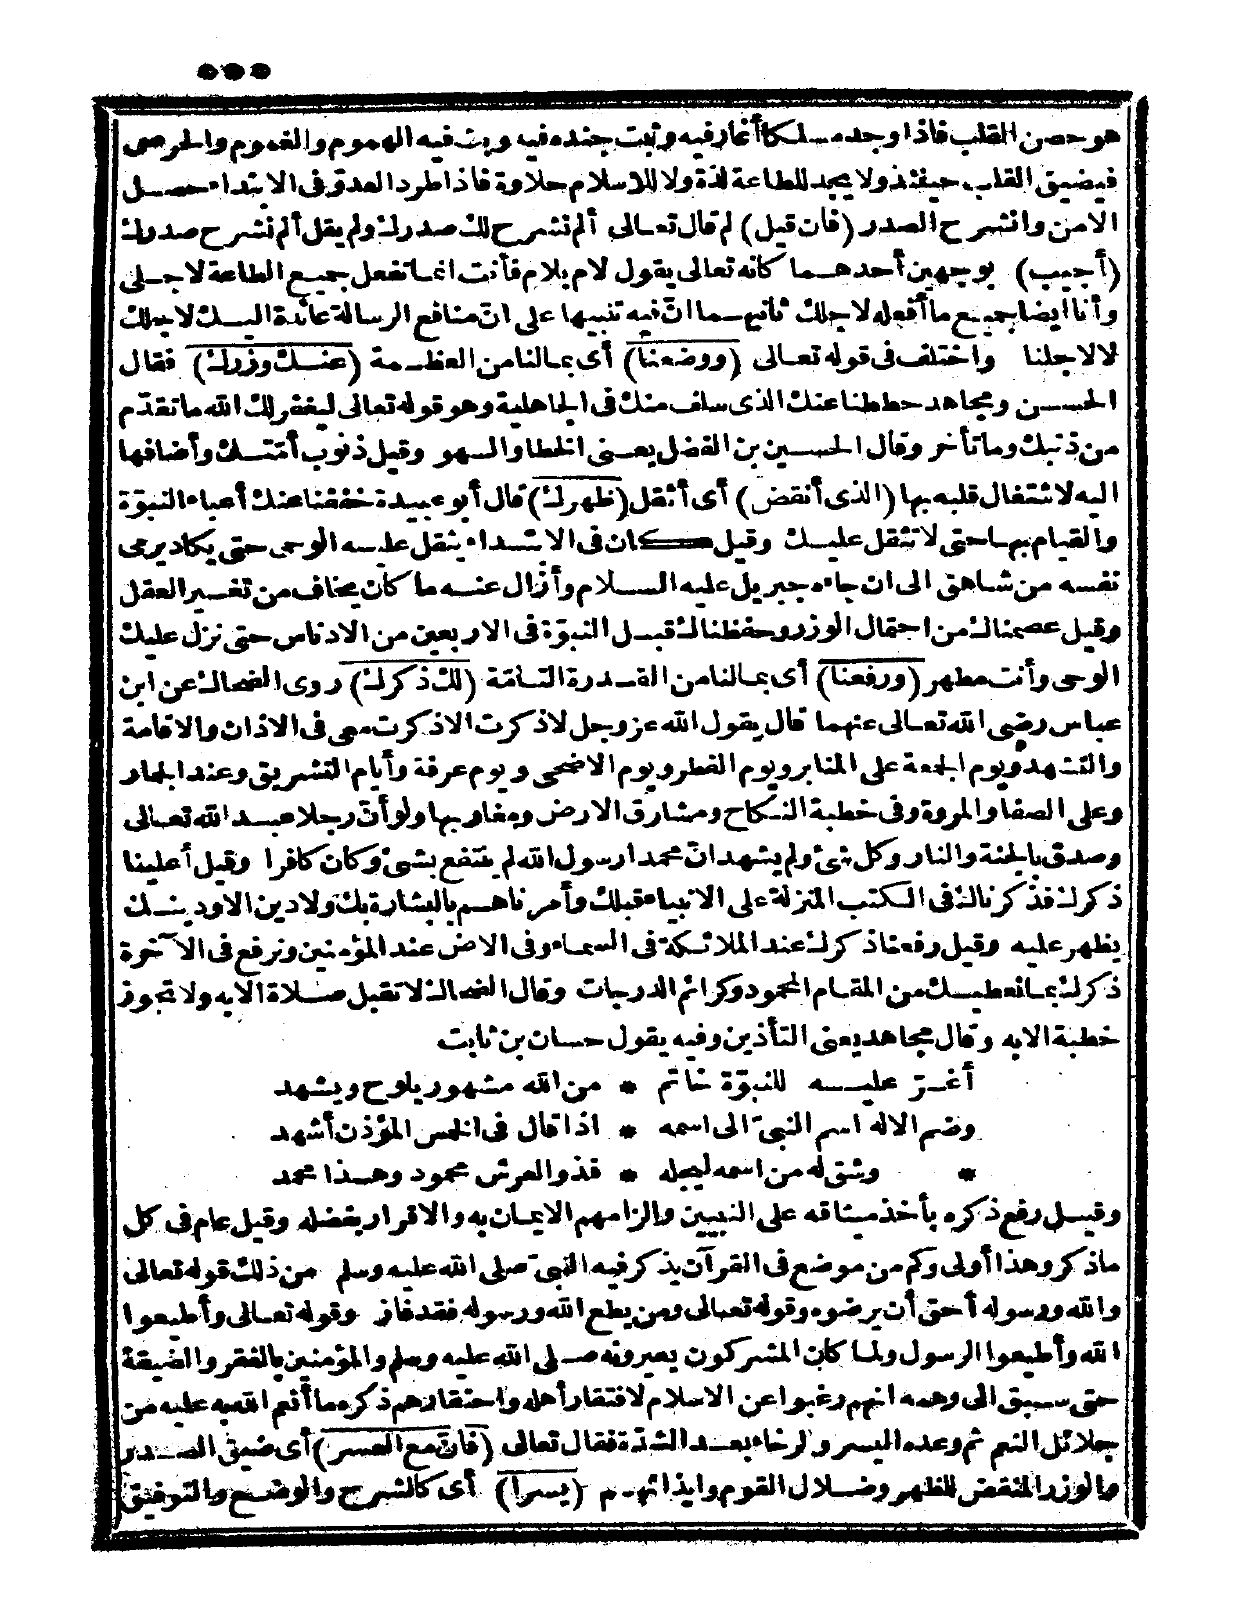 ٥٥٥
هو حصن القلب فاذا وجد مسلكا أغار فيه وثبت جنده فيه وبث فيه الهموم والغموم والحرص
فيضيق القلب حينئذ ولا يجد للطاعة لذة ولا للاسلام حلاوة فاذا طرد العدو فى الابتداء حصل
الامن وانشرح الصدر (فان قيل) لم قال تعالى ألم نشرح لك صدرك ولم يقل ألم نشرح صدرك
(أجيب) بوجهين أحدهما كانه تعالى يقول لام بلام فأنت انما تفعل جميع الطاعة لاجلى
وأنا ايضا جميع ما أفعله لاجلك ثانيهما انّ فيه تنبيها على انّ منافع الرسالة عائدة اليك لاجلك
لا لاجلنا واختلف فى قوله تعالى (ووضعنا) أى بمالنا من العظمة (عنك وزرك) فقال
الحسن ومجاهد حططنا عنك الذى سلف منك فى الجاهلية وهو قوله تعالى ليغفر لك الله ما تقدّم
من ذنبك وما تأخر وقال الحسين بن الفضل يعنى الخطا والسهو وقيل ذنوب أمّتك وأضافها
اليه لاشتغال قلبه بها (الذى أنقض) أى أثقل (ظهرك) قال أبو عبيدة خففنا عنك أعباء النبوّة
والقيام بها حتى لا تثقل عليك وقيل كان فى الابتداء يثقل عليه الوحى حتى يكاد يرمى
نفسه من شاهق الى ان جاءه جبريل عليه السلام وأزال عنه ما كان يخاف من تغير العقل
وقيل عصمناك من احتمال الوزر وحفظناك قبل النبوّة فى الاربعين من الادناس حتى نزل عليك
الوحى وأنت مطهر (ورفعنا) أى بمالنا من القدرة التامّة (لك ذكرك) روى الضحاك عن ابن
عباس رضى الله تعالى عنهما قال يقول الله عز وجل لا ذكرت الا ذكرت معى فى الاذان والاقامة
والتشهد ويوم الجمعة على المنابر ويوم الفطر ويوم الاضحى ويوم عرفة وأيام التشريق وعند الجمار
وعلى الصفا والمروة وفى خطبة النكاح ومشارق الارض ومغاربها ولو أنّ رجلا عبد الله تعالى
وصدق بالجنة والنار وكل شئ ولم يشهد انّ محمدا رسول الله لم ينتفع بشئ وكان كافرا وقيل أعلينا
ذكرك فذكرناك فى الكتب المنزلة على الانبياء قبلك وأمرناهم بالبشارة بك ولا دين الا ودينك
يظهر عليه وقيل رفعنا ذكرك عند الملائكة فى السماء وفى الارض عند المؤمنين ونرفع فى الآخرة
ذكرك بما نعطيك من المقام المحمود وكرائم الدرجات وقال الضحاك لا تقبل صلاة الا به ولا تجوز
خطبة الا به وقال مجاهد يعنى التأذين وفيه يقول حسان بن ثابت
أغرّ عليه للنبوّة خاتم * من الله مشهور يلوح ويشهد
وضم الاله اسم النبىّ الى اسمه * اذا قال فى الخمس المؤذن أشهد
* وشق له من اسمه ليجله * فذو العرش محمود وهذا محمد
وقيل رفع ذكره بأخذ ميثاقه على النبيين والزامهم الايمان به والاقرار بفضله وقيل عام فى كل
ما ذكر وهذا أولى وكم من موضع فى القرآن يذكر فيه النبىّ صلى الله عليه وسلم من ذلك قوله تعالى
والله ورسوله أحق أن يرضوه وقوله تعالى ومن يطع الله ورسوله فقد فاز وقوله تعالى وأطيعوا
الله وأطيعوا الرسول ولما كان المشركون يعيرونه صلى الله عليه وسلم والمؤمنين بالفقر والضيقة
حتى سبق الى وهمه انهم رغبوا عن الاسلام لافتقار أهله واحتقارهم ذكره ما أنعم الله به عليه من
جلائل النعم ثم وعده اليسر والرخاء بعد الشدّة فقال تعالى (فانّ مع العسر) أى ضيق الصدر
والوزر المنقض للظهر وضلال القوم وايذائهم (يسرا) أى كالشرح والوضع والتوفيق